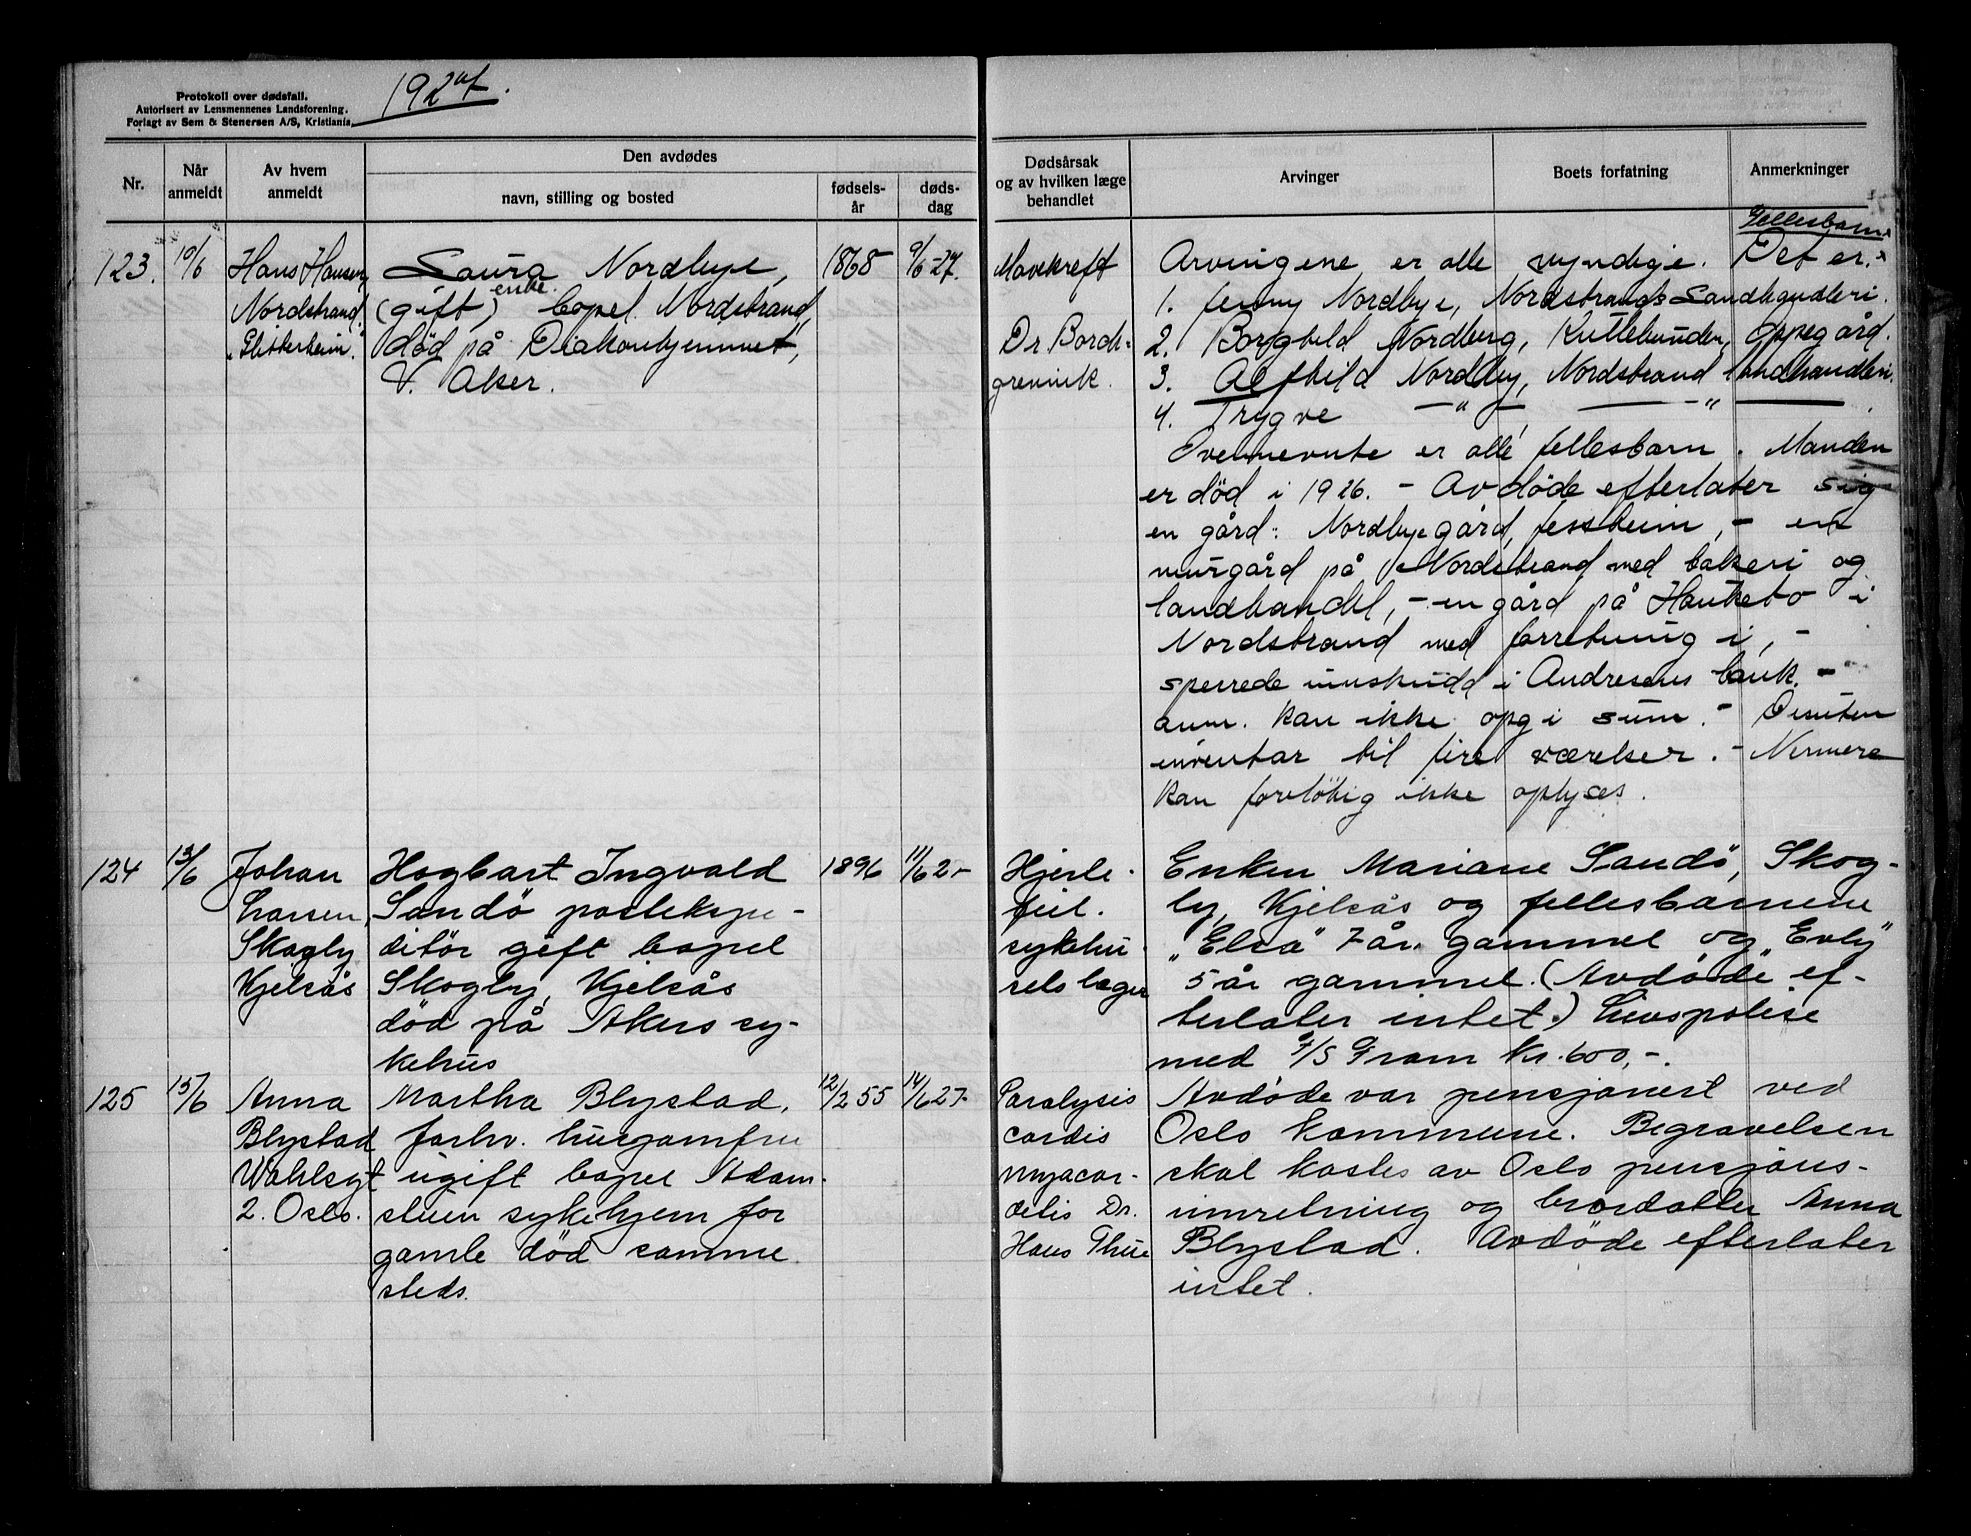 Protokoll over dødsfall.
Autorisert av Lensmennenes Landsforening.
Forlagt av Sem & Stenersen A/S, Kristiania
1927.
Nr.
Når anmeldt
Av hvem anmeldt
Den avdødes
navn, stilling og bosted
fødsels-år
døds-dag
Dødsårsak og av hvilken læge behandlet
Arvinger
Boets forfatning
Anmerkninger
123. 10/6
Hans Hansen,
Nordstrand.
"Glitterheim."
Laura Nordbye,
enke.
(gift) bopel Nordstrand,
død på Diakonhjemmet,
V. Aker.
1868 9/6-27.
Mavekreft
Dr. Borch-
grevink.
Fellesbarn
Arvingene er alle myndige. Det er:
1. Jenny Nordbye, Nordstrands Landhandleri.
2. Borghild Nordberg, Oppegård.
3. Alfhild Nordby, Nordstrand landhandleri.
4. Trygve —"— —"—.
Ovennevnte er alle fellesbarn. Manden
er død i 1926. - Avdøde efterlater sig
en gård: Nordbyegård, Jessheim, - en
murgård på Nordstrand med bakeri og
landhandel, - en gård på Hauketo i
Nordstrand med forretning i, -
sperrede innskudd i Andresens bank. -
anm. kan ikke opgi sum. - Desuten
inventar til fire værelser. - Nermere
kan foreløbig ikke oplyses.
124 13/6
Johan
Larsen,
Skogly
Kjelsås
Hagbart Ingvald
Sandö postekspe-
ditør gift bopel
Skogly, Kjelsås
død på Akers sy-
kehus
1896 11/6 2-
Hjerte-
feil.
sykehu-
sets læger
Enken Mariane Sandö, Skog-
ly, Kjelsås og fellesbarnene
"Elsa" 7 år gammel og "Evly"
5 år gammel. (Avdøde ef-
terlater intet.) Livspolise
med A/S Fram kr. 600,-.
125 15/6
Anna
Blystad
Wahlsgt
2. Oslo.
Martha Blystad,
forhv. husjomfru
ugift bopel Adam-
stuen sykehjem for
gamle død samme
steds.
12/2 55 14/6 27-
Paralysis
cordis
myocar-
ditis Dr.
Hans Thue
Avdøde var pensjonert ved
Oslo kommune. Begravelsen
skal kostes av Oslo pensjons-
innretning og brordatter Anna
Blystad. Avdøde efterlater
intet.